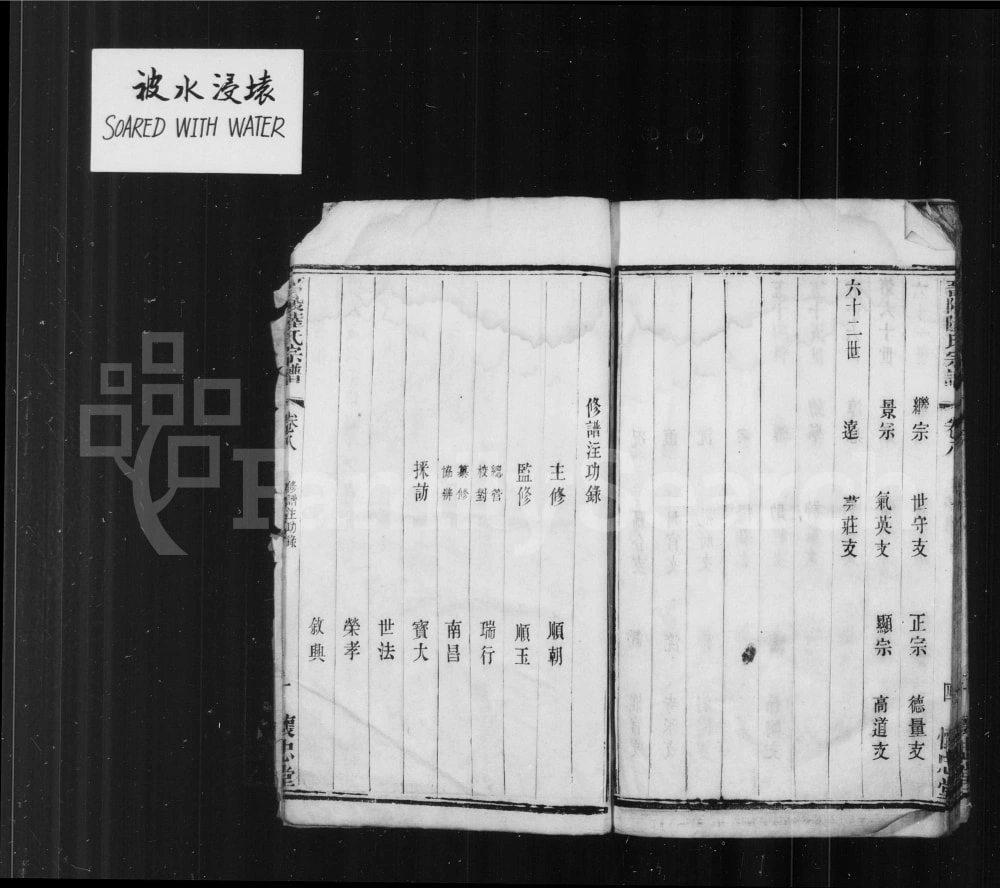 被水浸壞
SOARED WITH WATER
晉陵陸氏宗譜
卷八
四
懷忠堂
繼宗 世守支 正宗 德量支
景宗 氣英支 顯宗 高道支
六十二世
遠 莊支
修譜注功錄
主修 順朝
監修 順玉
總管 校對 瑞行
纂修 協辦 南昌
採訪 寳大
世法
榮孝
敘興
陵陸氏宗譜
卷八
修譜注功錄
一
懷忠堂
FamilySearch